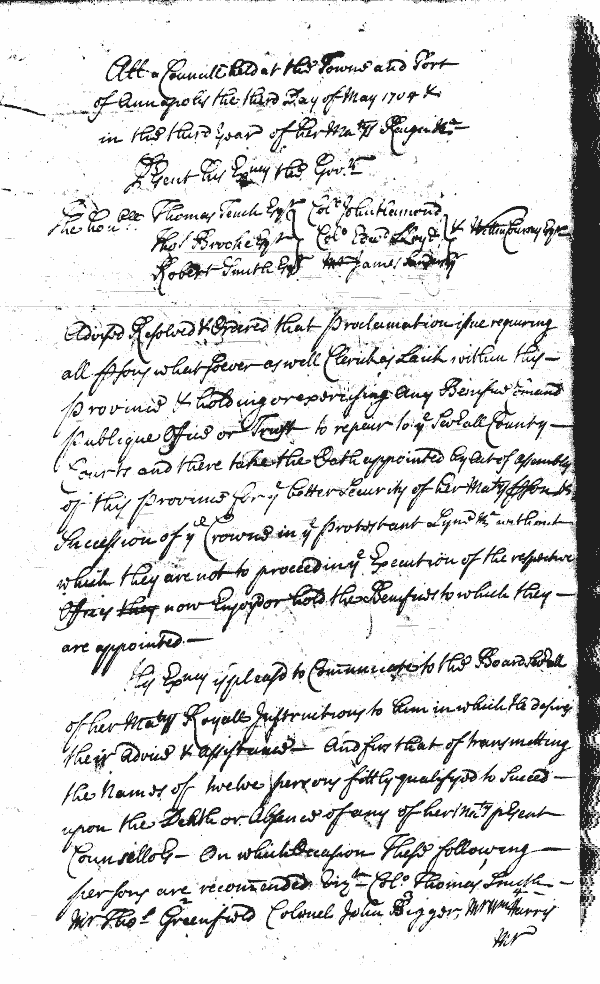 Att a Councill held at the Towne and Port
of Annapolis the third Day of May 1704 &
in the third Year of her Ma:tys Reign &c
Present his Ex:ncy the Gov:r
The hon:ble Thomas Tench Esq:r Col:o John Hamond
Tho:s Brooke Esq:r Col:o Edw:d Lloyd & William Coursey Esq:r
Robert Smith Esq:r James
Advised Resolved & Ordered that Proclamation issue requiring
all psons whatsoever as well Clerick as Laick within this
Province & holding or exercising any Benifice and
Publique Office or Trust to repair to y:e Severall County
Courts and there take the Oath appointed by Act of Assembly
of this Province for y:e better Security of her Ma:tys pson &
Succession of y:e Crowne in y:e Protestant Lyne &c without
which they are not to proceed in y:e Execution of the respective
Offices they now Enjoy or hold the Benifices to which they
are appointed
His Ex:ncy is pleased to Communicate to the Board Severall
of her Ma:tys Royall Instructions to him in which He desires
their Advice & Assistance And first that of transmitting
the Names of twelve persons fittly qualifyed to Succeed
upon the Death or Absence of any of her Ma:tys psent
Counsello:rs On which Occasion These following
persons are recomended Viz:t Col:o Thomas Smith
M:r Tho:s Greenfield Colonel John Bigger, M:r W:m Harris
M:r